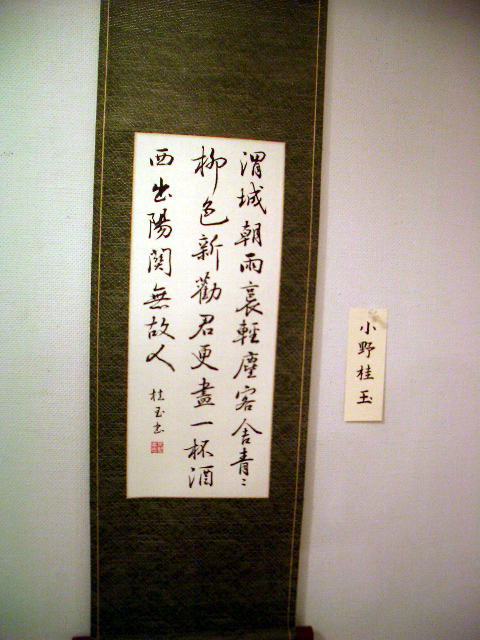 渭城朝雨裛輕塵客舍青〻
柳色新勸君更盡一杯酒
西出陽関無故人
桂玉書
小野桂玉